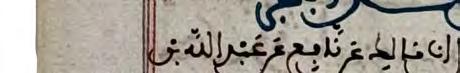 ان مالك عن نافع عن عبد الله بن